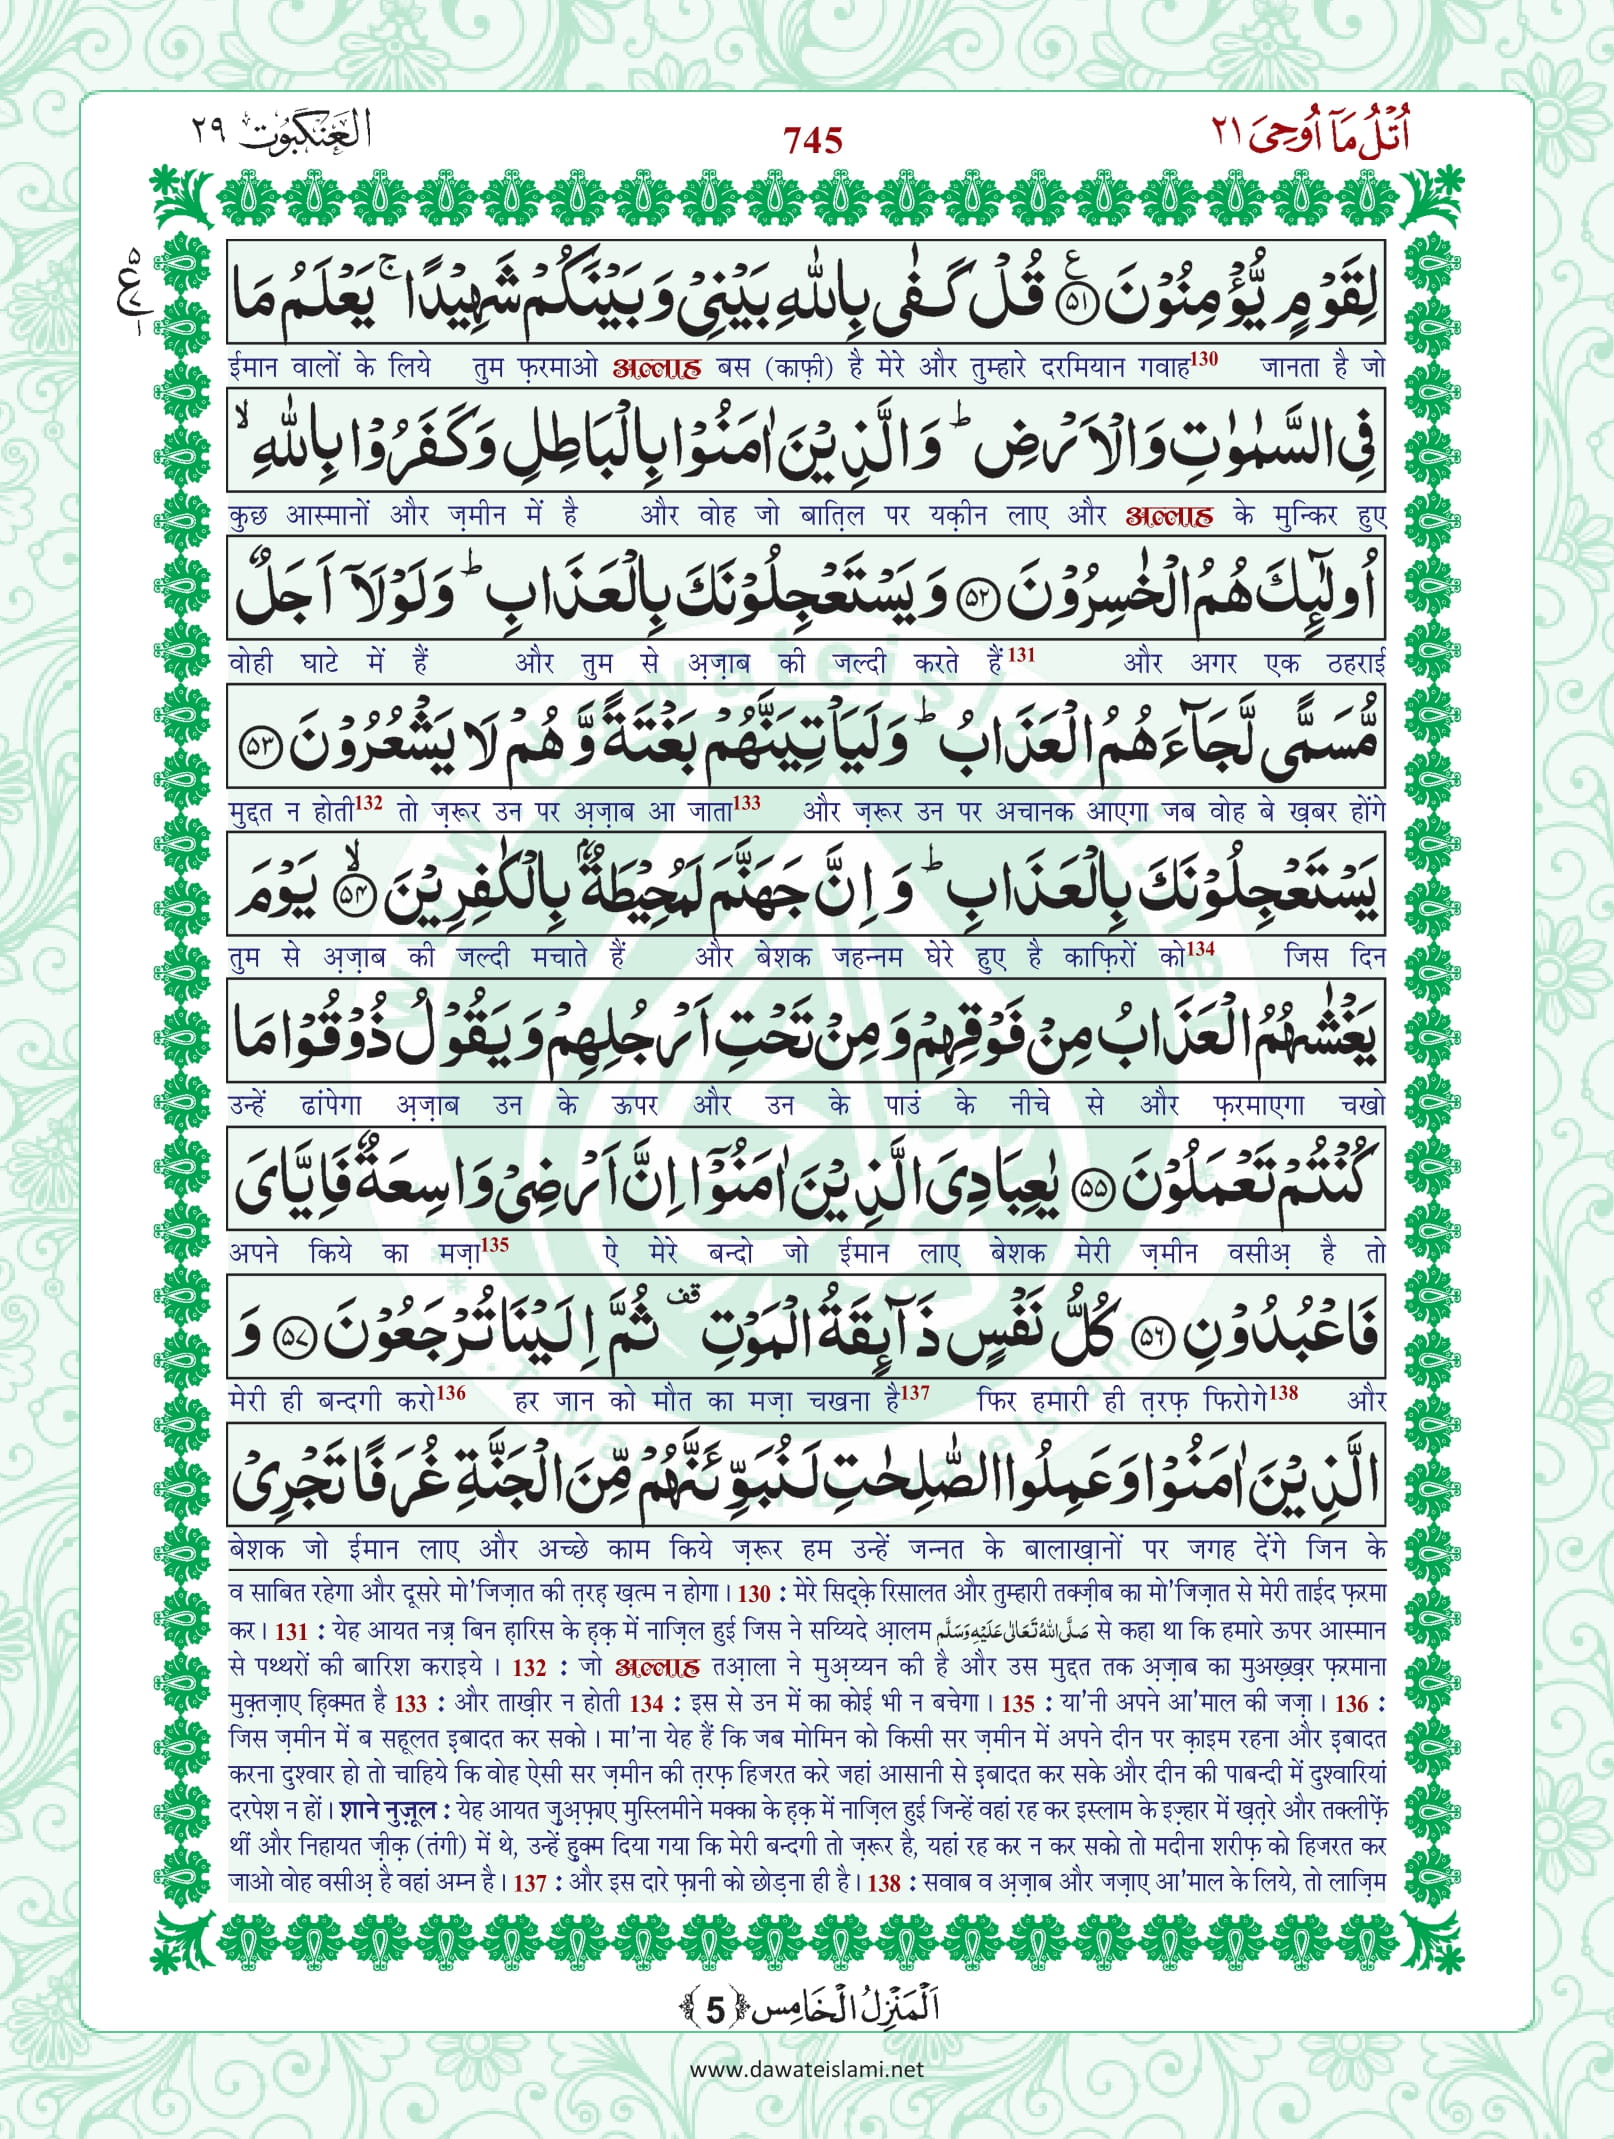 اُتْلُ مَآ اُوْحِیَ ٢١
745
الْعَنْكَبُوْت ٢٩
لِقَوْمٍ یُّؤْمِنُوْنَ ﴿۵۱﴾ قُلْ كَفٰی بِاللّٰهِ بَیْنِیْ وَ بَیْنَكُمْ شَهِیْدًا ۚ یَعْلَمُ مَا
ईमान वालों के लिये तुम फ़रमाओ अल्लाह बस (काफ़ी) है मेरे और तुम्हारे दरमियान गवाह130 जानता है जो
فِی السَّمٰوٰتِ وَ الْاَرْضِ ؕ وَ الَّذِیْنَ اٰمَنُوْا بِالْبَاطِلِ وَ كَفَرُوْا بِاللّٰهِ ۙ
कुछ आस्मानों और ज़मीन में है और वोह जो बातिल पर यक़ीन लाए और अल्लाह के मुन्किर हुए
اُولٰٓىِٕكَ هُمُ الْخٰسِرُوْنَ ﴿۵۲﴾ وَ یَسْتَعْجِلُوْنَكَ بِالْعَذَابِ ؕ وَ لَوْ لَاۤ اَجَلٌ
वोही घाटे में हैं और तुम से अज़ाब की जल्दी करते हैं131 और अगर एक ठहराई
مُّسَمًّی لَّجَآءَهُمُ الْعَذَابُ ؕ وَ لَیَاْتِیَنَّهُمْ بَغْتَةً وَّ هُمْ لَا یَشْعُرُوْنَ ﴿۵۳﴾
मुद्दत न होती132 तो ज़रूर उन पर अज़ाब आ जाता133 और ज़रूर उन पर अचानक आएगा जब वोह बे ख़बर होंगे
یَسْتَعْجِلُوْنَكَ بِالْعَذَابِ ؕ وَ اِنَّ جَهَنَّمَ لَمُحِیْطَةٌۢ بِالْكٰفِرِیْنَ ﴿ۙ۵۴﴾ یَوْمَ
तुम से अज़ाब की जल्दी मचाते हैं और बेशक जहन्नम घेरे हुए है काफ़िरों को134 जिस दिन
یَغْشٰىهُمُ الْعَذَابُ مِنْ فَوْقِهِمْ وَ مِنْ تَحْتِ اَرْجُلِهِمْ وَ یَقُوْلُ ذُوْقُوْا مَا
उन्हें ढांपेगा अज़ाब उन के ऊपर और उन के पाउं के नीचे से और फ़रमाएगा चखो
كُنْتُمْ تَعْمَلُوْنَ ﴿۵۵﴾ یٰعِبَادِیَ الَّذِیْنَ اٰمَنُوْۤا اِنَّ اَرْضِیْ وَاسِعَةٌ فَاِیَّایَ
अपने किये का मज़ा135 ऐ मेरे बन्दो जो ईमान लाए बेशक मेरी ज़मीन वसीअ़ है तो
فَاعْبُدُوْنِ ﴿۵۶﴾ كُلُّ نَفْسٍ ذَآىِٕقَةُ الْمَوْتِ ۫ ثُمَّ اِلَیْنَا تُرْجَعُوْنَ ﴿۵۷﴾ وَ
मेरी ही बन्दगी करो136 हर जान को मौत का मज़ा चखना है137 फिर हमारी ही त़रफ़ फिरोगे138 और
الَّذِیْنَ اٰمَنُوْا وَ عَمِلُوا الصّٰلِحٰتِ لَنُبَوِّئَنَّهُمْ مِّنَ الْجَنَّةِ غُرَفًا تَجْرِیْ
बेशक जो ईमान लाए और अच्छे काम किये ज़रूर हम उन्हें जन्नत के बालाख़ानों पर जगह देंगे जिन के
व साबित रहेगा और दूसरे मो'जिज़ात की त़रह़ ख़त्म न होगा। 130 : मेरे सिद्क़े रिसालत और तुम्हारी तक्ज़ीब का मो'जिज़ात से मेरी ताईद फ़रमा
कर। 131 : येह आयत नज़्र बिन ह़ारिस के ह़क़ में नाज़िल हुई जिस ने सय्यिदे आ़लम صَلَّى اللهُ تَعَالٰى عَلَيْهِ وَسَلَّم से कहा था कि हमारे ऊपर आस्मान
से पथ्थरों की बारिश कराइये। 132 : जो अल्लाह तआ़ला ने मुअ़य्यन की है और उस मुद्दत तक अ़ज़ाब का मुअख़्ख़र फ़रमाना
मुक़्तज़ाए ह़िक्मत है 133 : और ताख़ीर न होती 134 : इस से उन में का कोई भी न बचेगा। 135 : या'नी अपने आ'माल की जज़ा। 136 :
जिस ज़मीन में ब सहूलत इबादत कर सको। मा'ना येह हैं कि जब मोमिन को किसी सर ज़मीन में अपने दीन पर क़ाइम रहना और इबादत
करना दुश्वार हो तो चाहिये कि वोह ऐसी सर ज़मीन की त़रफ़ हिजरत करे जहां आसानी से इबादत कर सके और दीन की पाबन्दी में दुश्वारियां
दरपेश न हों। शाने नुज़ूल : येह आयत जुअ़फ़ाए मुस्लिमीने मक्का के ह़क़ में नाज़िल हुई जिन्हें वहां रह कर इस्लाम के इज़्हार में ख़त़रे और तक्लीफ़ें
थीं और निहायत ज़ीक़ (तंगी) में थे, उन्हें हुक्म दिया गया कि मेरी बन्दगी तो ज़रूर है, यहां रह कर न कर सको तो मदीना शरीफ़ को हिजरत कर
जाओ वोह वसीअ़ है वहां अम्न है। 137 : और इस दारे फ़ानी को छोड़ना ही है। 138 : सवाब व अ़ज़ाब और जज़ाए आ'माल के लिये, तो लाज़िम
اَلْمَنْزِلُ الْخَامِس ﴿5﴾
www.dawateislami.net